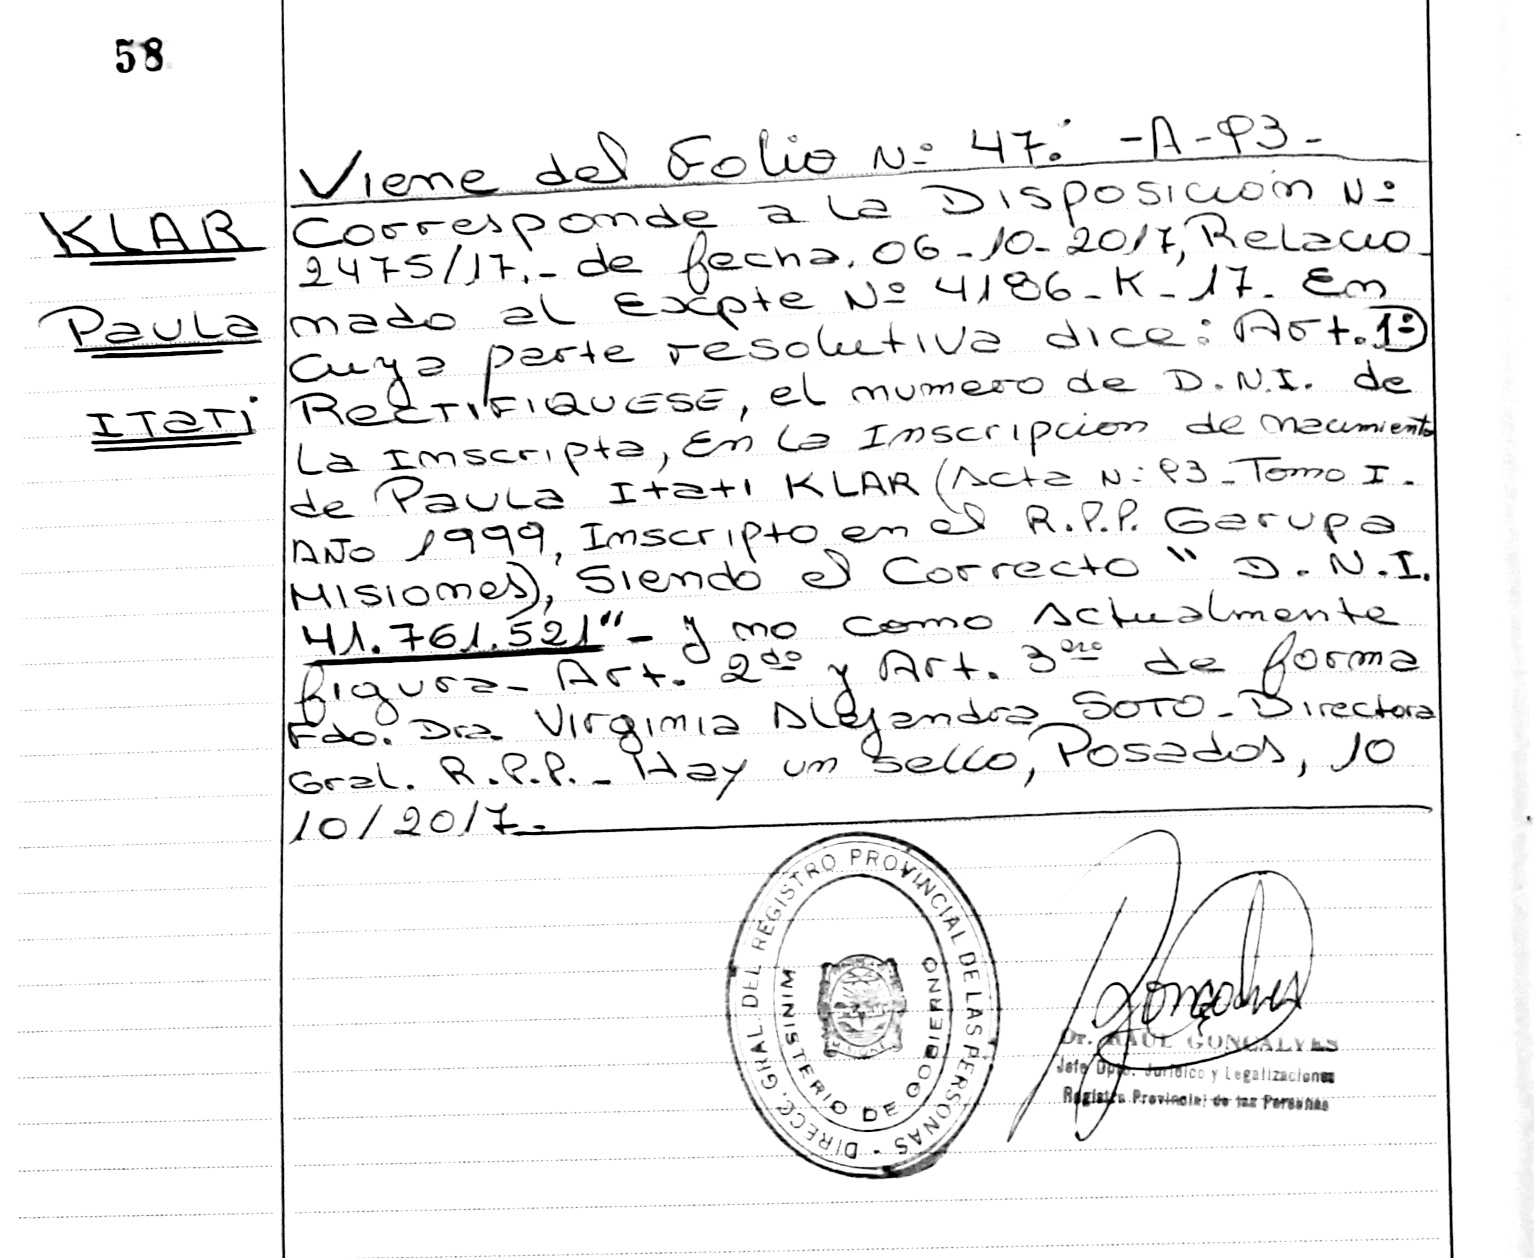 58
Viene del Folio Nº 47. -A-93-
KLAR
Paula
Itati
Corresponde a la Disposición Nº
2475/17.- de fecha. 06-10-2017, Relacio
nado al Expte Nº 4186-K-17. En
cuya parte resolutiva dice: Art. 1º)
RECTIFIQUESE, el numero de D.N.I. de
La Inscripta, En la Inscripcion de nacimiento
de Paula Itati KLAR (Acta Nº 93-Tomo I.
AÑo 1999, Inscripto en el R.P.P. Garupa
Misiones), Siendo el Correcto " D.N.I.
41.761.521"- y no como Actualmente
figura- Art. 2do y Art. 3ero de forma
Fdo. Dra. Virginia Alejandra SOTO-Directora
Gral. R.P.P.- Hay un sello, Posadas, 10
10/2017.-
DIRECC. GRAL. DEL REGISTRO PROVINCIAL DE LAS PERSONAS -
MINISTERIO DE GOBIERNO
Gonçalves
Dr. RAUL GONCALVES
Jefe Dpto. Juridico y Legalizaciones
Registro Provincial de las Personas